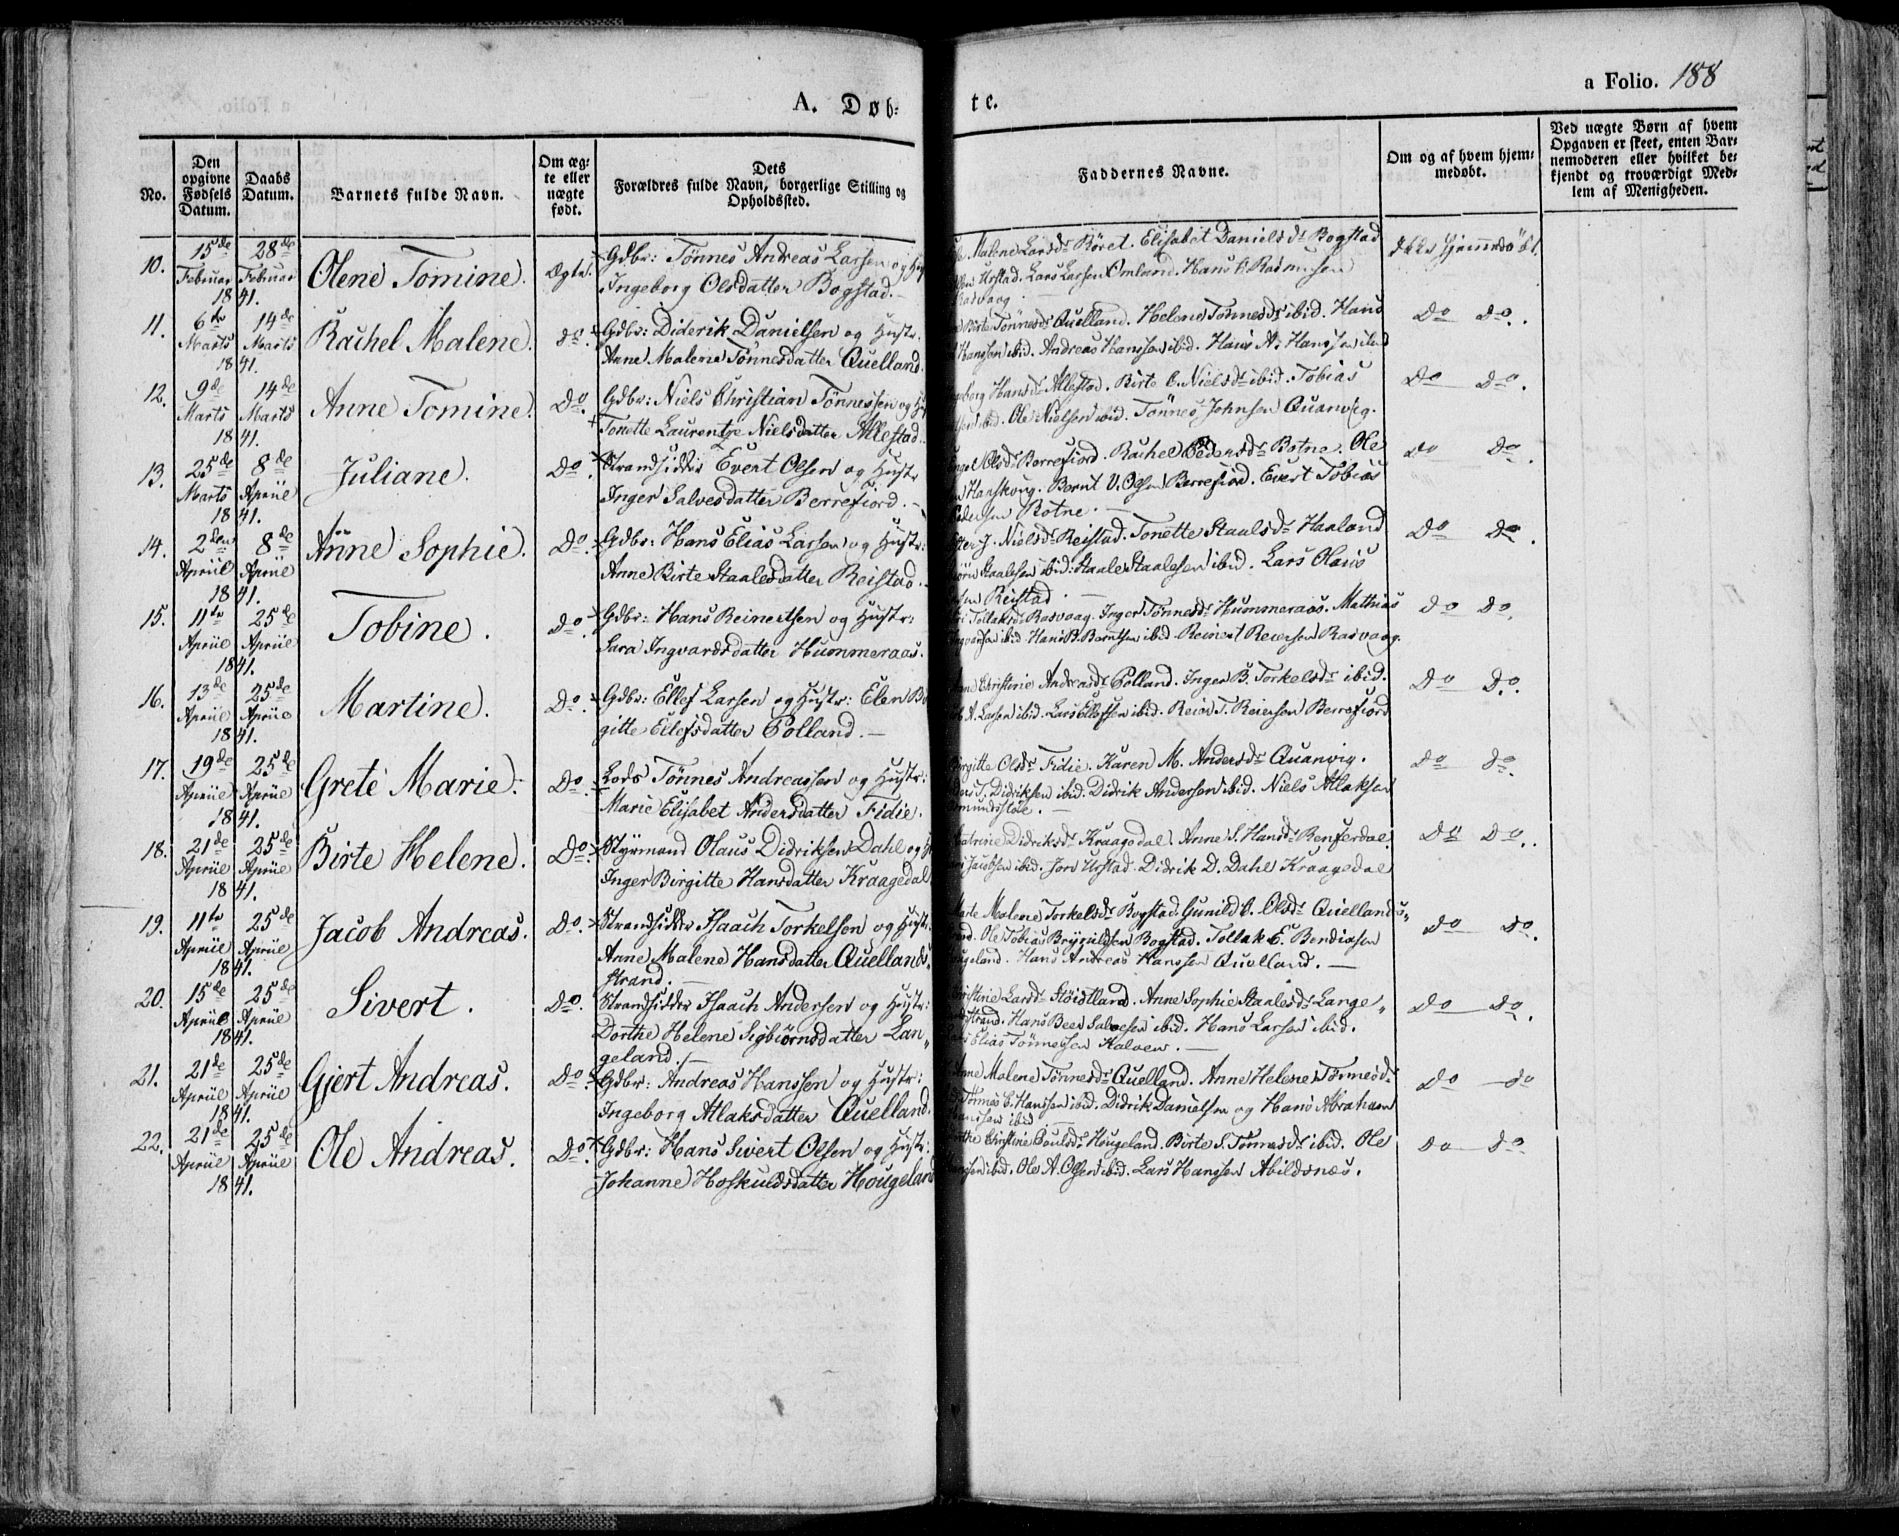 a Folio. 188
A. Døb-
te.
No.
Den opgivne Fødsels Datum.
Daabs Datum.
Barnets fulde Navn.
Om ægte eller uægte født.
Dets Forældres fulde Navn, borgerlige Stilling og Opholdssted.
Faddernes Navne.
Om og af hvem hjemmedøbt.
Ved uægte Børn af hvem Opgaven er skeet, enten Barnemoderen eller hvilket bekjendt og troværdigt Medlem af Menigheden.
10. 15de Februar 1841. 28de Februar Olene Tomine. Ægte. Gdbr: Tønnes Andreas Larsen og
Ingeborg Olsdatter Bogstad.
Malene Larsdr Røret. Elisabet Danielsdr Bogstad
Urstad. Lars Larsen Omland. Hans C. Rasmussen
Rasvaag.
Ikke hjemmedøbt.
11. 6te Marts 1841. 14de Marts Rachel Malene. do. Gdbr: Diderik Danielsen og Hustr:
Anne Malene Tønnesdatter Quelland.
Birte Tønnesdr Quelland. Helene Tønnesdr ibid. Hans
Hanssen ibid. Andreas Hanssen ibid. Hans A. Hanssen ibid
Do Do.
12. 9de Marts 1841. 14de Marts Anne Tomine. Do. Gdbr: Niels Christian Tønnessen og
Tonette Laurentze Nielsdatter Allestad.
Hansdr Allestad. Birte C. Nielsdr ibid. Tobias
ibid. Ole Nielsen ibid. Tønnes Johnsen Quanvig.
Do Do.
13. 25de Marts 1841. 8de Apriil Juliane. Do. Strandsidder Evert Olsen og Hustr:
Inger Salvesdatter Berrefiord.
Olsdr Berrefiord. Rachel Pedersdr Botne. Ole
Hanskoug. Bernt V. Olsen Berrefiord. Evert Tobias
Pedersen Botne.
Do Do.
14. 2den Apriil 1841. 8de Apriil Anne Sophie. Do. Gdbr: Hans Elias Larsen og Hustr:
Anne Birte Staalesdatter Reistad.
J. Nielsdr Reistad. Tonette Staalsdr Haaland
Staalesen ibid. Staale Staalesen ibid. Lars Olaus
Reistad.
Do Do.
15. 11te Apriil 1841. 25de Apriil Tobine. Do. Gdbr: Hans Reinertsen og Hustr:
Sara Ingvardsdatter Hummeraas.
Tollaksdr Rasvaag. Inger Tønnesdr Hummeraas. Mathias
Ingvardsen ibid. Hans B. Berntsen ibid. Reinert Reiersen Rasvaag.
Do Do.
16. 13de Apriil 1841. 25de Apriil Martine. Do. Gdbr: Ellef Larsen og Hustr: Elen Bir
gitte Eilefsdatter Polland.
Christine Andreasdr Polland. Inger B. Torkelsdr ibid.
A. Larsen ibid. Lars Ellefsen ibid. Reier T. Reiersen Berrefiord
Do Do.
17. 19de Apriil 1841. 25de Apriil Grete Marie. Do. Lods Tønnes Andreassen og Hustr:
Marie Elisabet Andersdatter Fidie.
Birgitte Olsdr Fidie. Karen M. Andersdr Quanvig.
T. Didriksen ibid. Didrik Andersen ibid. Niels Atlaksen
Do Do.
18. 21de Apriil 1841. 25de Apriil Birte Helene. Do. Styrmand Olaus Didriksen Dahl og
Inger Birgitte Hansdatter Kraagedal
Catrine Didriksdr Kraagedal. Anne S. Hansdr Benferdal
Jacobsen ibid. Jørn Urstad. Didrik D. Dahl Kraagedal
Do Do.
19. 11te Apriil 1841. 25de Apriil Jacob Andreas. Do. Strandsidder Isaach Torkelsen og Hustr:
Anne Malene Hansdatter Quellands-
strand.
Marte Malene Torkelsdr Bogstad. Gunild C. Olsdr Quellands-
strand. Ole Tobias Brynildsen Bogstad. Tollak E. Bendixsen
Hougeland. Hans Andreas Hanssen Quelland.
Do Do.
20. 15de Apriil 1841. 25de Apriil Sivert. Do. Strandsidder Isaach Andersen og Hustr:
Dorthe Helene Sigbiørnsdatter Lan-
geland.
Christine Larsdr Støistland. Anne Sophie Staalesdr Lange-
strand. Hans Beer Salvesen ibid. Hans Larsen ibid.
Elias Tønnessen Kalven.
Do Do.
21. 21de Apriil 1841. 25de Apriil Gjert Andreas. Do. Gdbr: Andreas Hanssen og Hustr:
Ingeborg Atlaksdatter Quelland.
Anne Malene Tønnesdr Quelland. Anne Helene Tønnesdr
Tønnes C. Hanssen ibid. Didrik Danielsen og Hans Abraham
Hanssen ibid
Do Do
22. 21de Apriil 1841. 25de Apriil Ole Andreas. Do. Gdbr: Hans Sivert Olsen og Hustr:
Johanne Hoskuldsdatter Hougeland
Christine Poulsdr Hougeland. Birte S. Tønnesdr ibid. Ole
Hanssen ibid. Ole A. Olsen ibid. Lars Hanssen Abildsnæs.
Do Do.